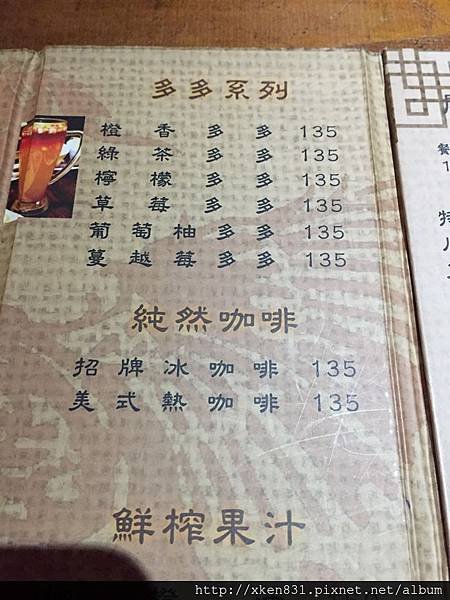 多多系列
橙香多多 135
綠茶多多 135
檸檬多多 135
草莓多多 135
葡萄柚多多 135
蔓越莓多多 135
純然咖啡
招牌冰咖啡 135
美式熱咖啡 135
鮮榨果汁
餐
特
http://xken831.pixnet.net/album